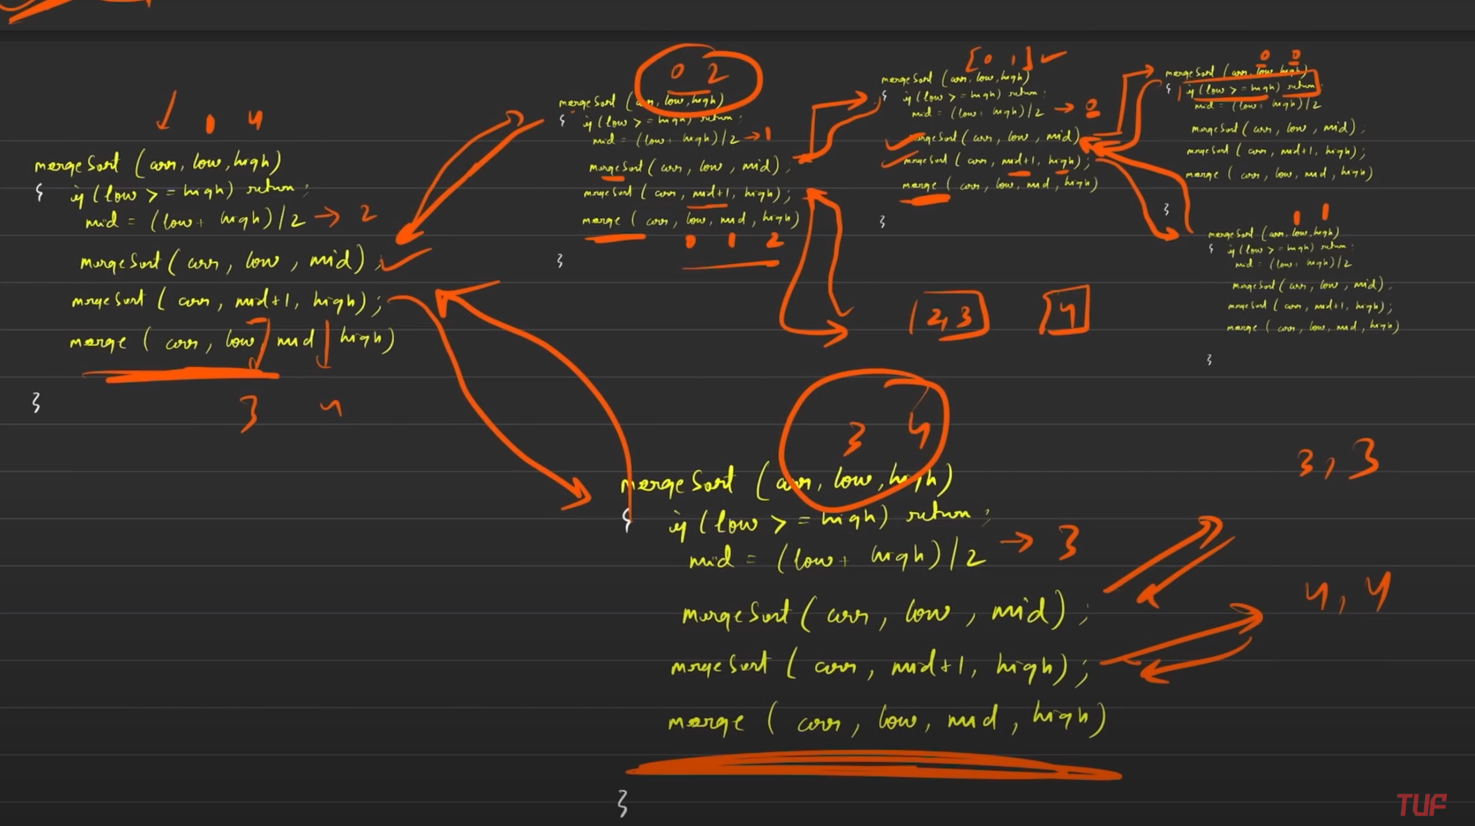 0 4
mergeSort (arr, low, high)
{ if (low >= high) return;
mid = (low + high)/2 → 2
mergeSort (arr, low, mid);
mergeSort (arr, mid+1, high);
merge (arr, low, mid, high)
3 4
}
0 2
mergeSort (arr, low, high)
{ if (low >= high) return;
mid = (low + high)/2 → 1
mergeSort (arr, low, mid);
mergeSort (arr, mid+1, high);
merge (arr, low, mid, high)
0 1 2
}
[0 1]
mergeSort (arr, low, high)
{ if (low >= high) return;
mid = (low + high)/2 → 0
mergeSort (arr, low, mid)
mergeSort (arr, mid+1, high);
merge (arr, low, mid, high)
}
0 0
mergeSort (arr, low, high)
{ if (low >= high) return;
mid = (low + high)/2
mergeSort (arr, low, mid);
mergeSort (arr, mid+1, high);
merge (arr, low, mid, high)
}
1 1
mergeSort (arr, low, high)
{ if (low >= high) return;
mid = (low + high)/2
mergeSort (arr, low, mid),
mergeSort (arr, mid+1, high);
merge (arr, low, mid, high)
}
2,3 4
3 4
mergeSort (arr, low, high)
{ if (low >= high) return;
mid = (low + high)/2 → 3
mergeSort (arr, low, mid);
mergeSort (arr, mid+1, high);
merge (arr, low, mid, high)
}
3, 3
4, 4
TUF